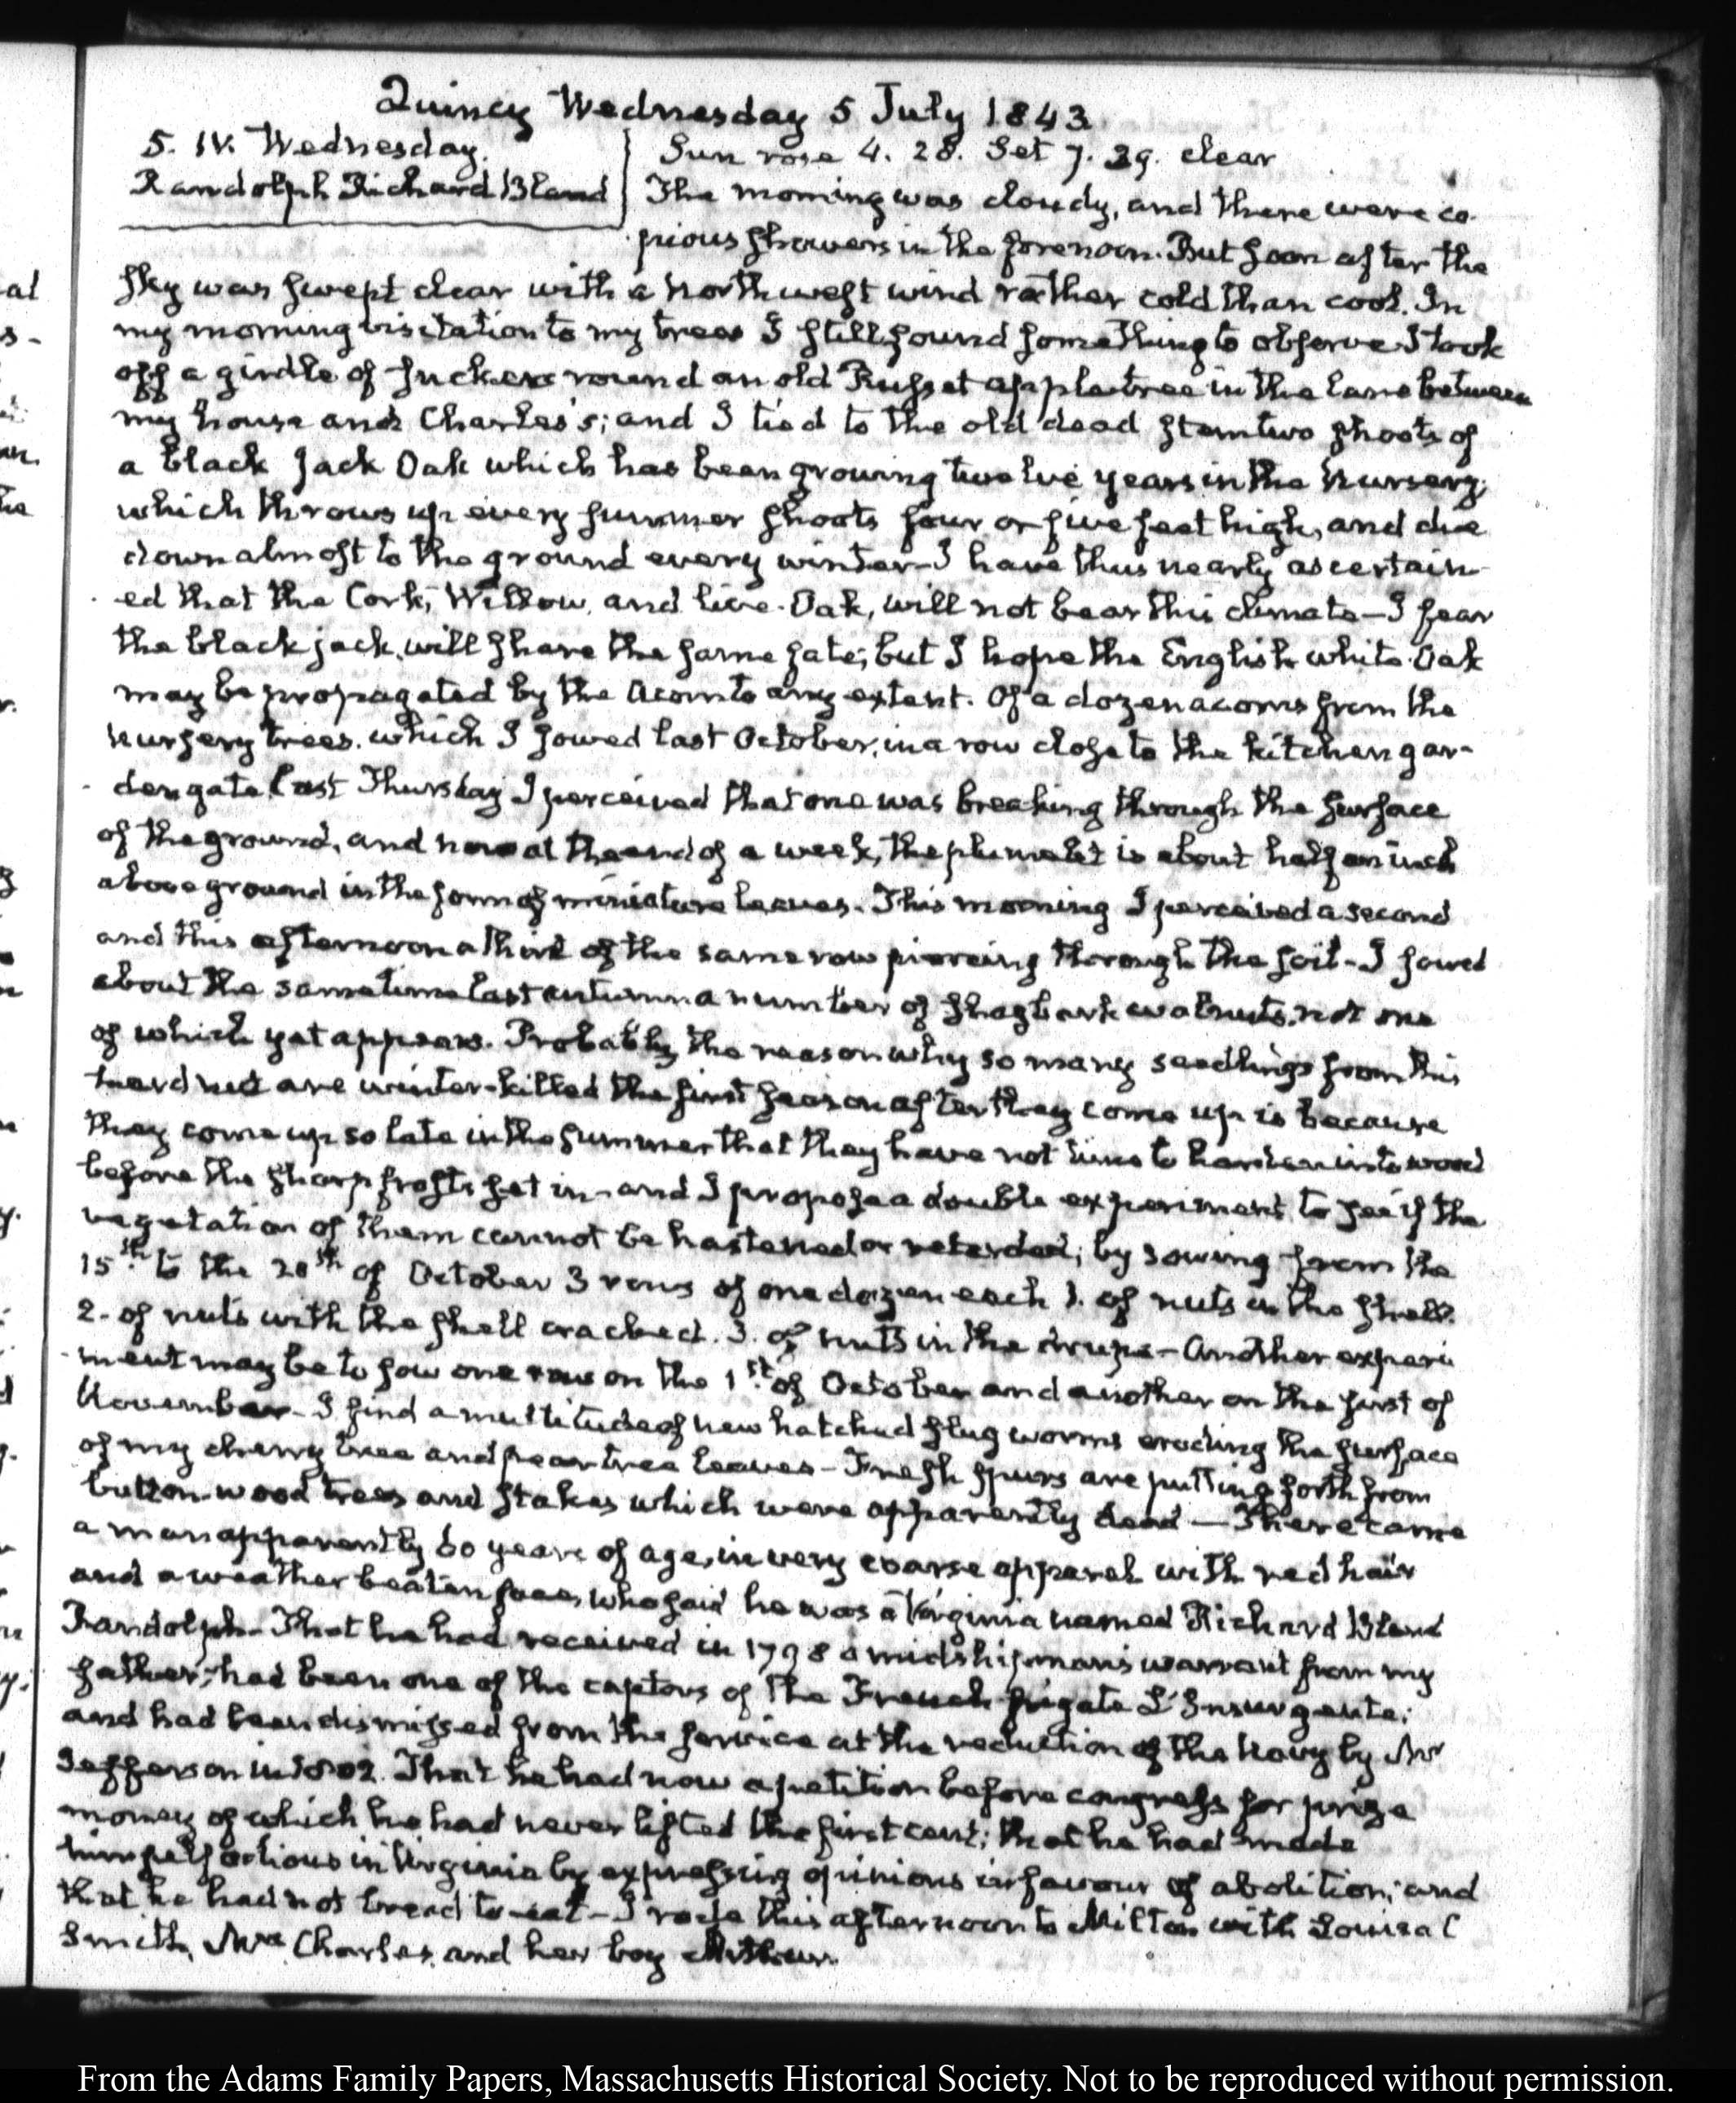 Quincy Wednesday 5 July 1843
5. IV. Wednesday.
Randolph Richard Bland
Sun rose 4. 28. Set 7. 39. clear
The morning was cloudy, and there were co-
pious showers in the forenoon. But soon after the
sky was swept clear with a Northwest wind rather cold than cool. In
my morning visitation to my trees I still found something to observe I took
off a girdle of suckers round an old Russet apple tree in the lane between
my house and Charles's; and I tied to the old dead stem two shoots of
a black Jack Oak which has been growing twelve years in the Nursery;
which throws up every summer shoots four or five feet high, and die
down almost to the ground every winter—I have thus nearly ascertain-
ed that the Cork, Willow, and live-Oak, will not bear this climate—I fear
the black jack, will share the same fate; but I hope the English white Oak
may be propagated by the Acorn to any extent. Of a dozen acorns from the
nursery trees, which I sowed last October, in a row close to the kitchen gar-
den gate last Thursday I perceived that one was breaking through the surface
of the ground, and now at the end of a week, the plumelet is about half an inch
above ground in the form of miniature leaves. This morning I perceived a second
and this afternoon a third of the same row piercing through the soil—I sowed
about the same time last autumn a number of shagbark walnuts, not one
of which yet appears. Probably the reason why so many seedlings from this
hard nut are winter-killed the first season after they come up is because
they come up so late in the summer that they have not time to harden into wood
before the sharp frosts set in—and I propose a double experiment to see if the
vegetation of them cannot be hastened or retarded; by sowing from the
15th to the 20th of October 3 rows of one dozen each 1. of nuts in the shell.
2. of nuts with the shell cracked. 3. of nuts in the drupe—Another experi-
ment may be to sow one row on the 1st of October and another on the first of
November—I find a multitude of new hatched slug worms eroding the surface
of my cherry tree and pear tree leaves—Fresh spurs are putting forth from
button-wood trees and stakes which were apparently dead—There came
a man apparently 60 years of age, in very coarse apparel with red hair
and a weather beaten face, who said he was a Virginia named Richard Bland
Randolph—That he had received in 1798 a midshipman's warrant from my
father; had been one of the captors of the French frigate L'Insurgente;
and had been dismissed from the service at the reduction of the Navy by Mr
Jefferson in 1802. That he had now a petition before congress for prize
money of which he had never lifted the first cent; that he had made
himself odious in Virginia by expressing opinions in favour of abolition; and
that he had not bread to eat—I rode this afternoon to Milton with Louisa C
Smith, Mrs Charles, and her boy Arthur.
From the Adams Family Papers, Massachusetts Historical Society. Not to be reproduced without permission.